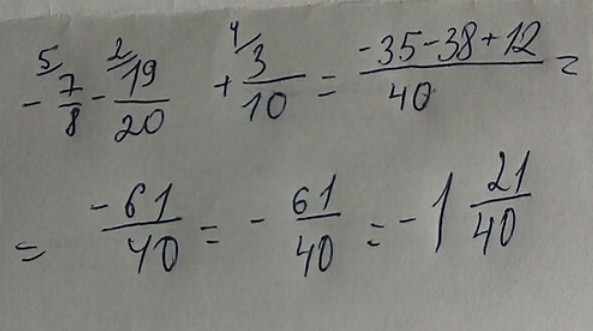 -⁵⁄7/8 - ²⁄19/20 + ⁴⁄3/10 = -35-38+12/40 =
= -61/40 = - 61/40 = -1 21/40